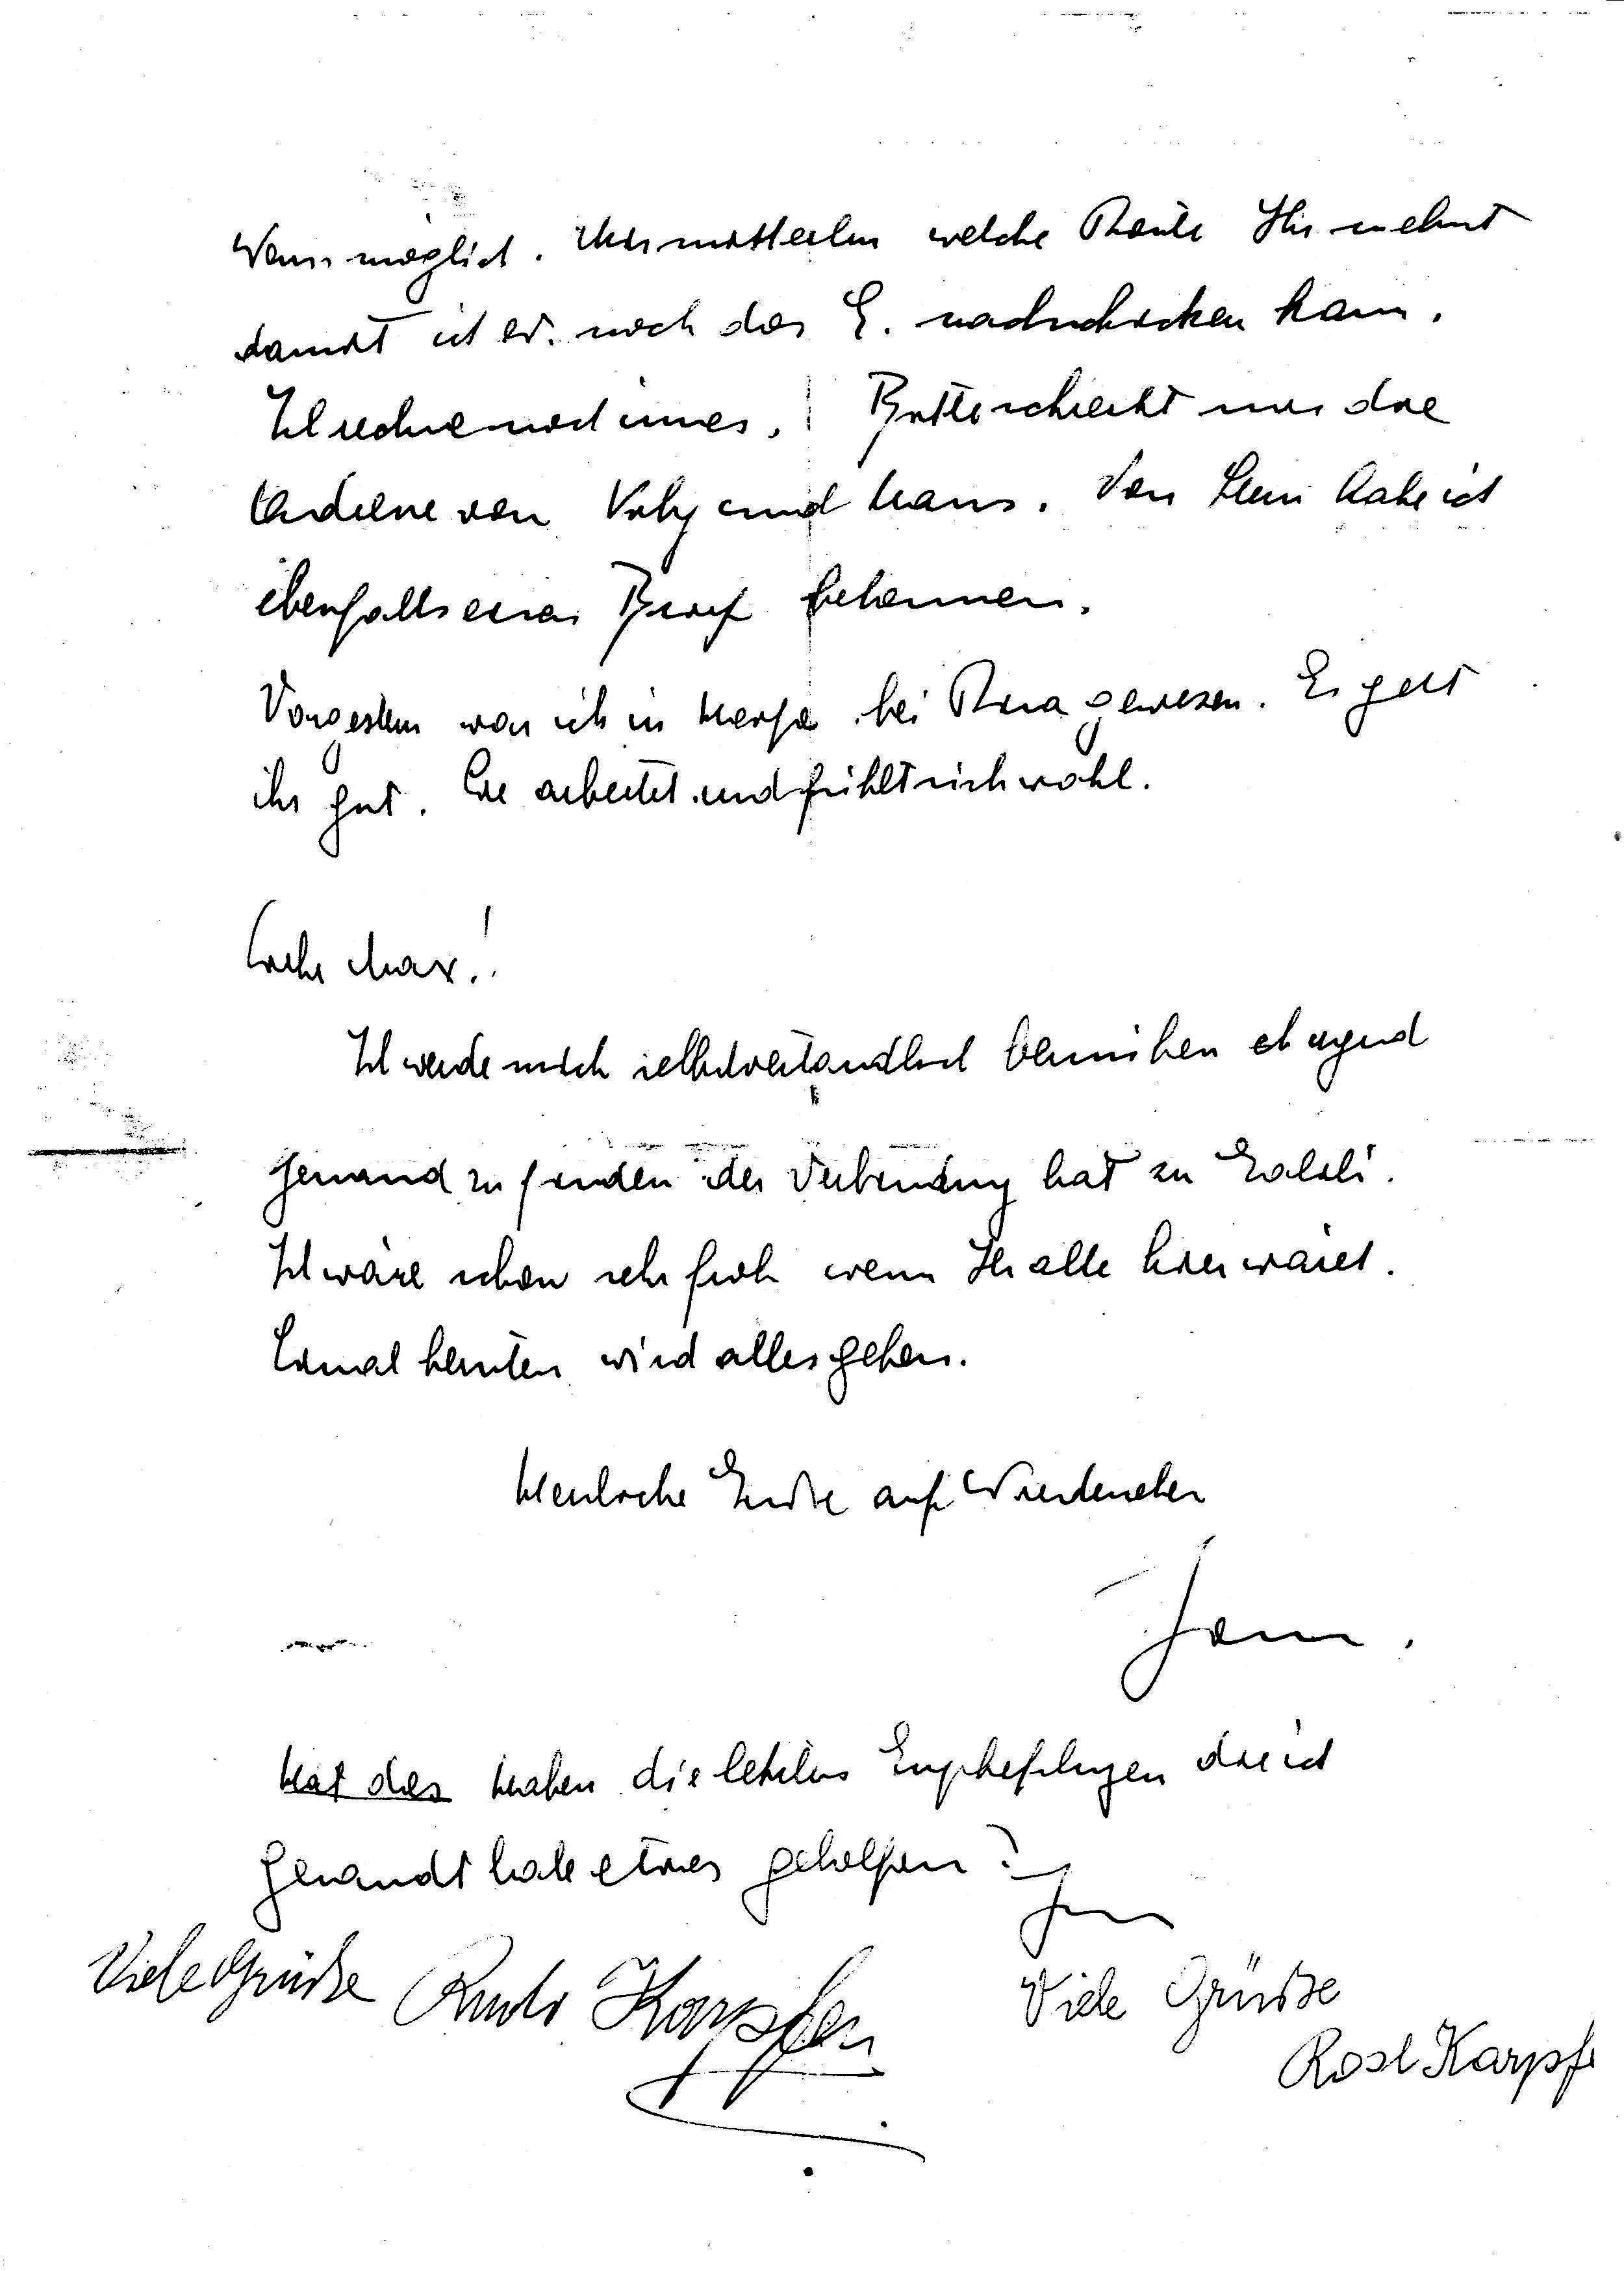 Wenn möglich. Mir mitteilen welche Route Ihr nehmt
damit ich ev. noch das G. nachschicken kann.
Ich rechne noch immer. Bitte schreibt mir die
Adresse von und Hans. Von habe ich
ebenfalls einen Brief bekommen.
Vorgestern war ich in bei gewesen. Es geht
ihr gut. Sie arbeitet und fühlt sich wohl.
Lieber Max!
Ich werde mich selbstverständlich bemühen ob irgend
jemand zu finden der Verbindung hat zu
Ich wäre schon sehr froh wenn Ihr alle hier wäret.
Einmal herüten wird alles gehen.
Herzliche Grüße auf Wiedersehen
Jann.
Hat das Haben die letzten Empfehlungen die ich
gesandt habe etwas geholfen?
Viele Grüße Rudi Karpfen
Viele Grüsse
Rosl Karpf